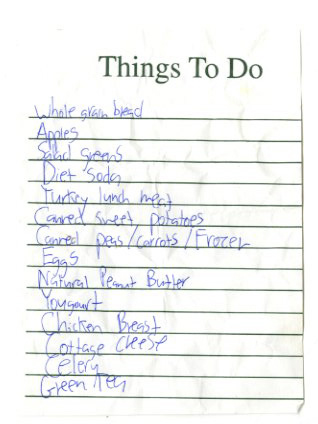 Things To Do
Whole grain bread
Apples
Salad greens
Diet Soda
Turkey lunch meat
Canned sweet potatoes
Canned peas/carrots/Frozen
Eggs
Natural Peanut Butter
Yougurt
Chicken Breast
Cottage cheese
Celery
Green Tea